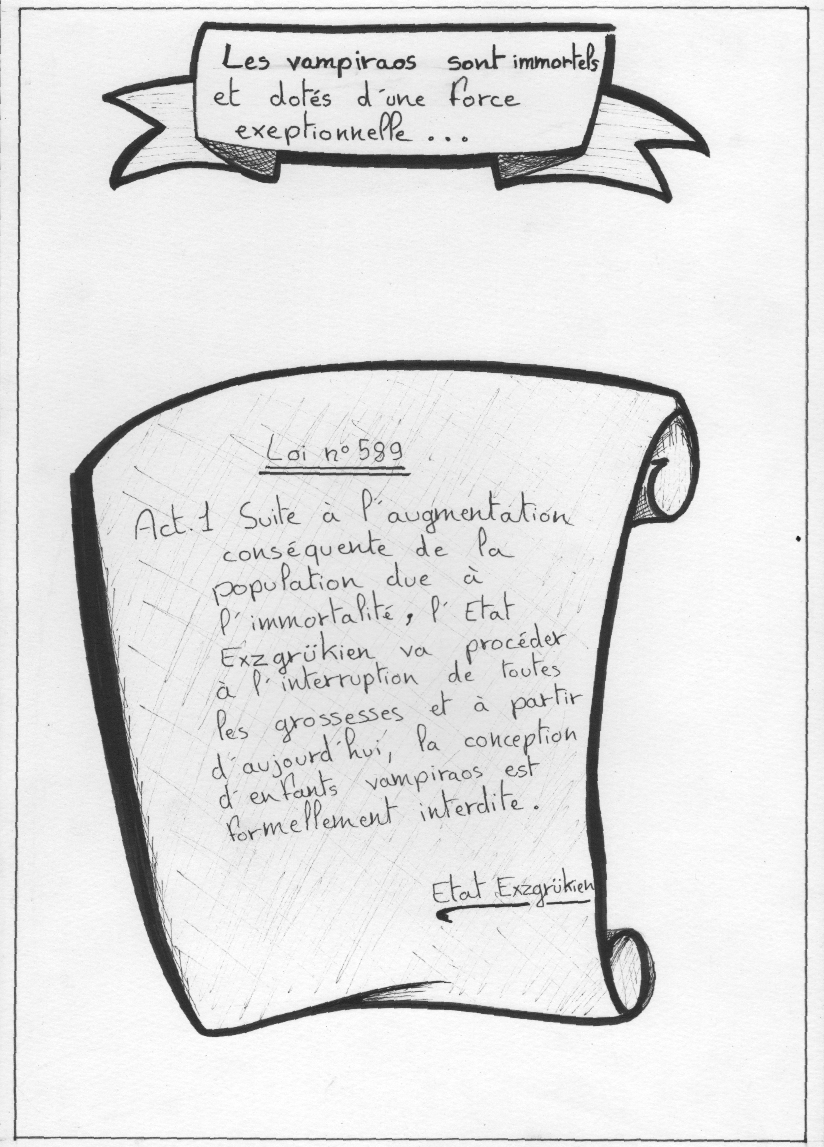 Les vampiraos sont immortels
et dotés d'une force
exeptionnelle...
Loi n° 589
Act.1 Suite à l'augmentation
conséquente de la
population due à
l'immortalité, l'Etat
Exzgrükien va procéder
à l'interruption de toutes
les grossesses et à partir
d'aujourd'hui, la conception
d'enfants vampiraos est
formellement interdite.
Etat Exzgrükien